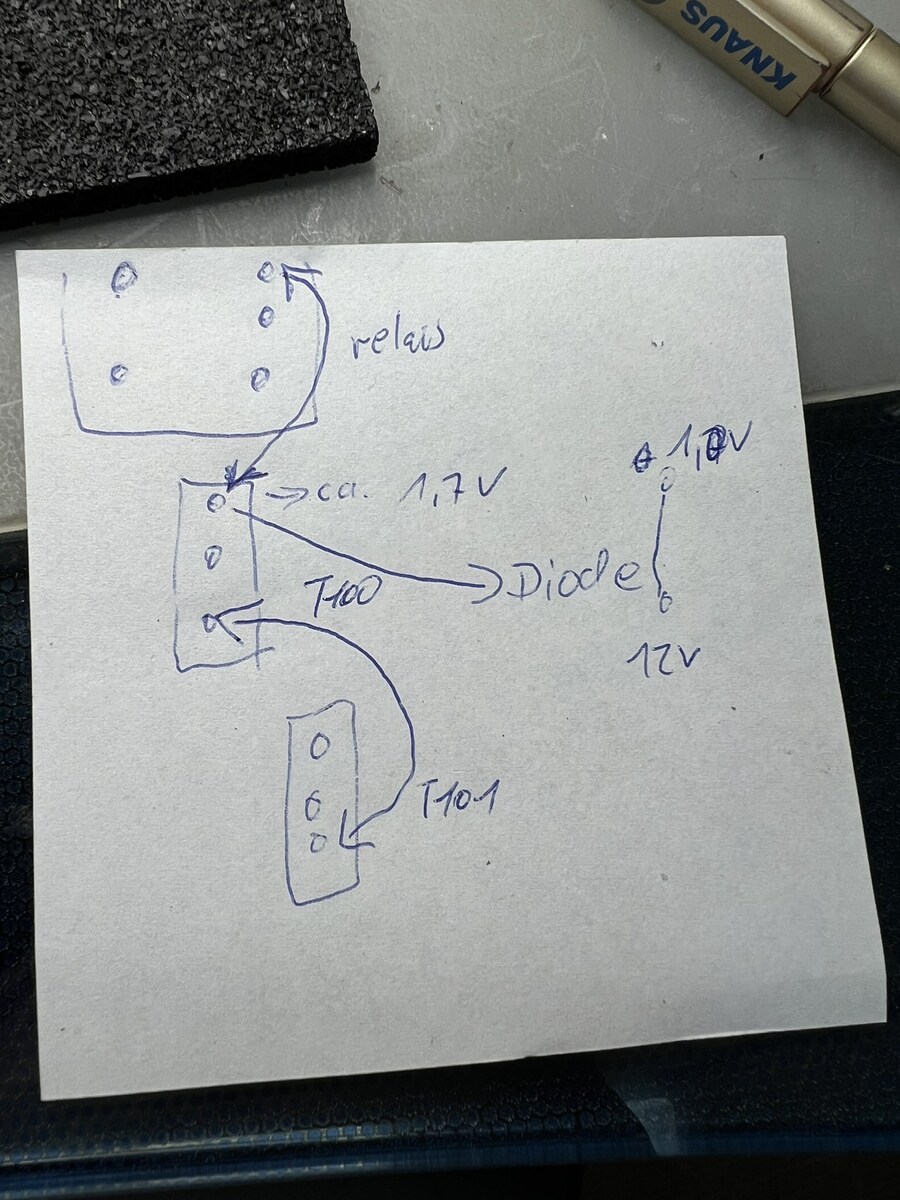 KNAUS
relais
ca. 1,7V
T100
Diode
12V
T101